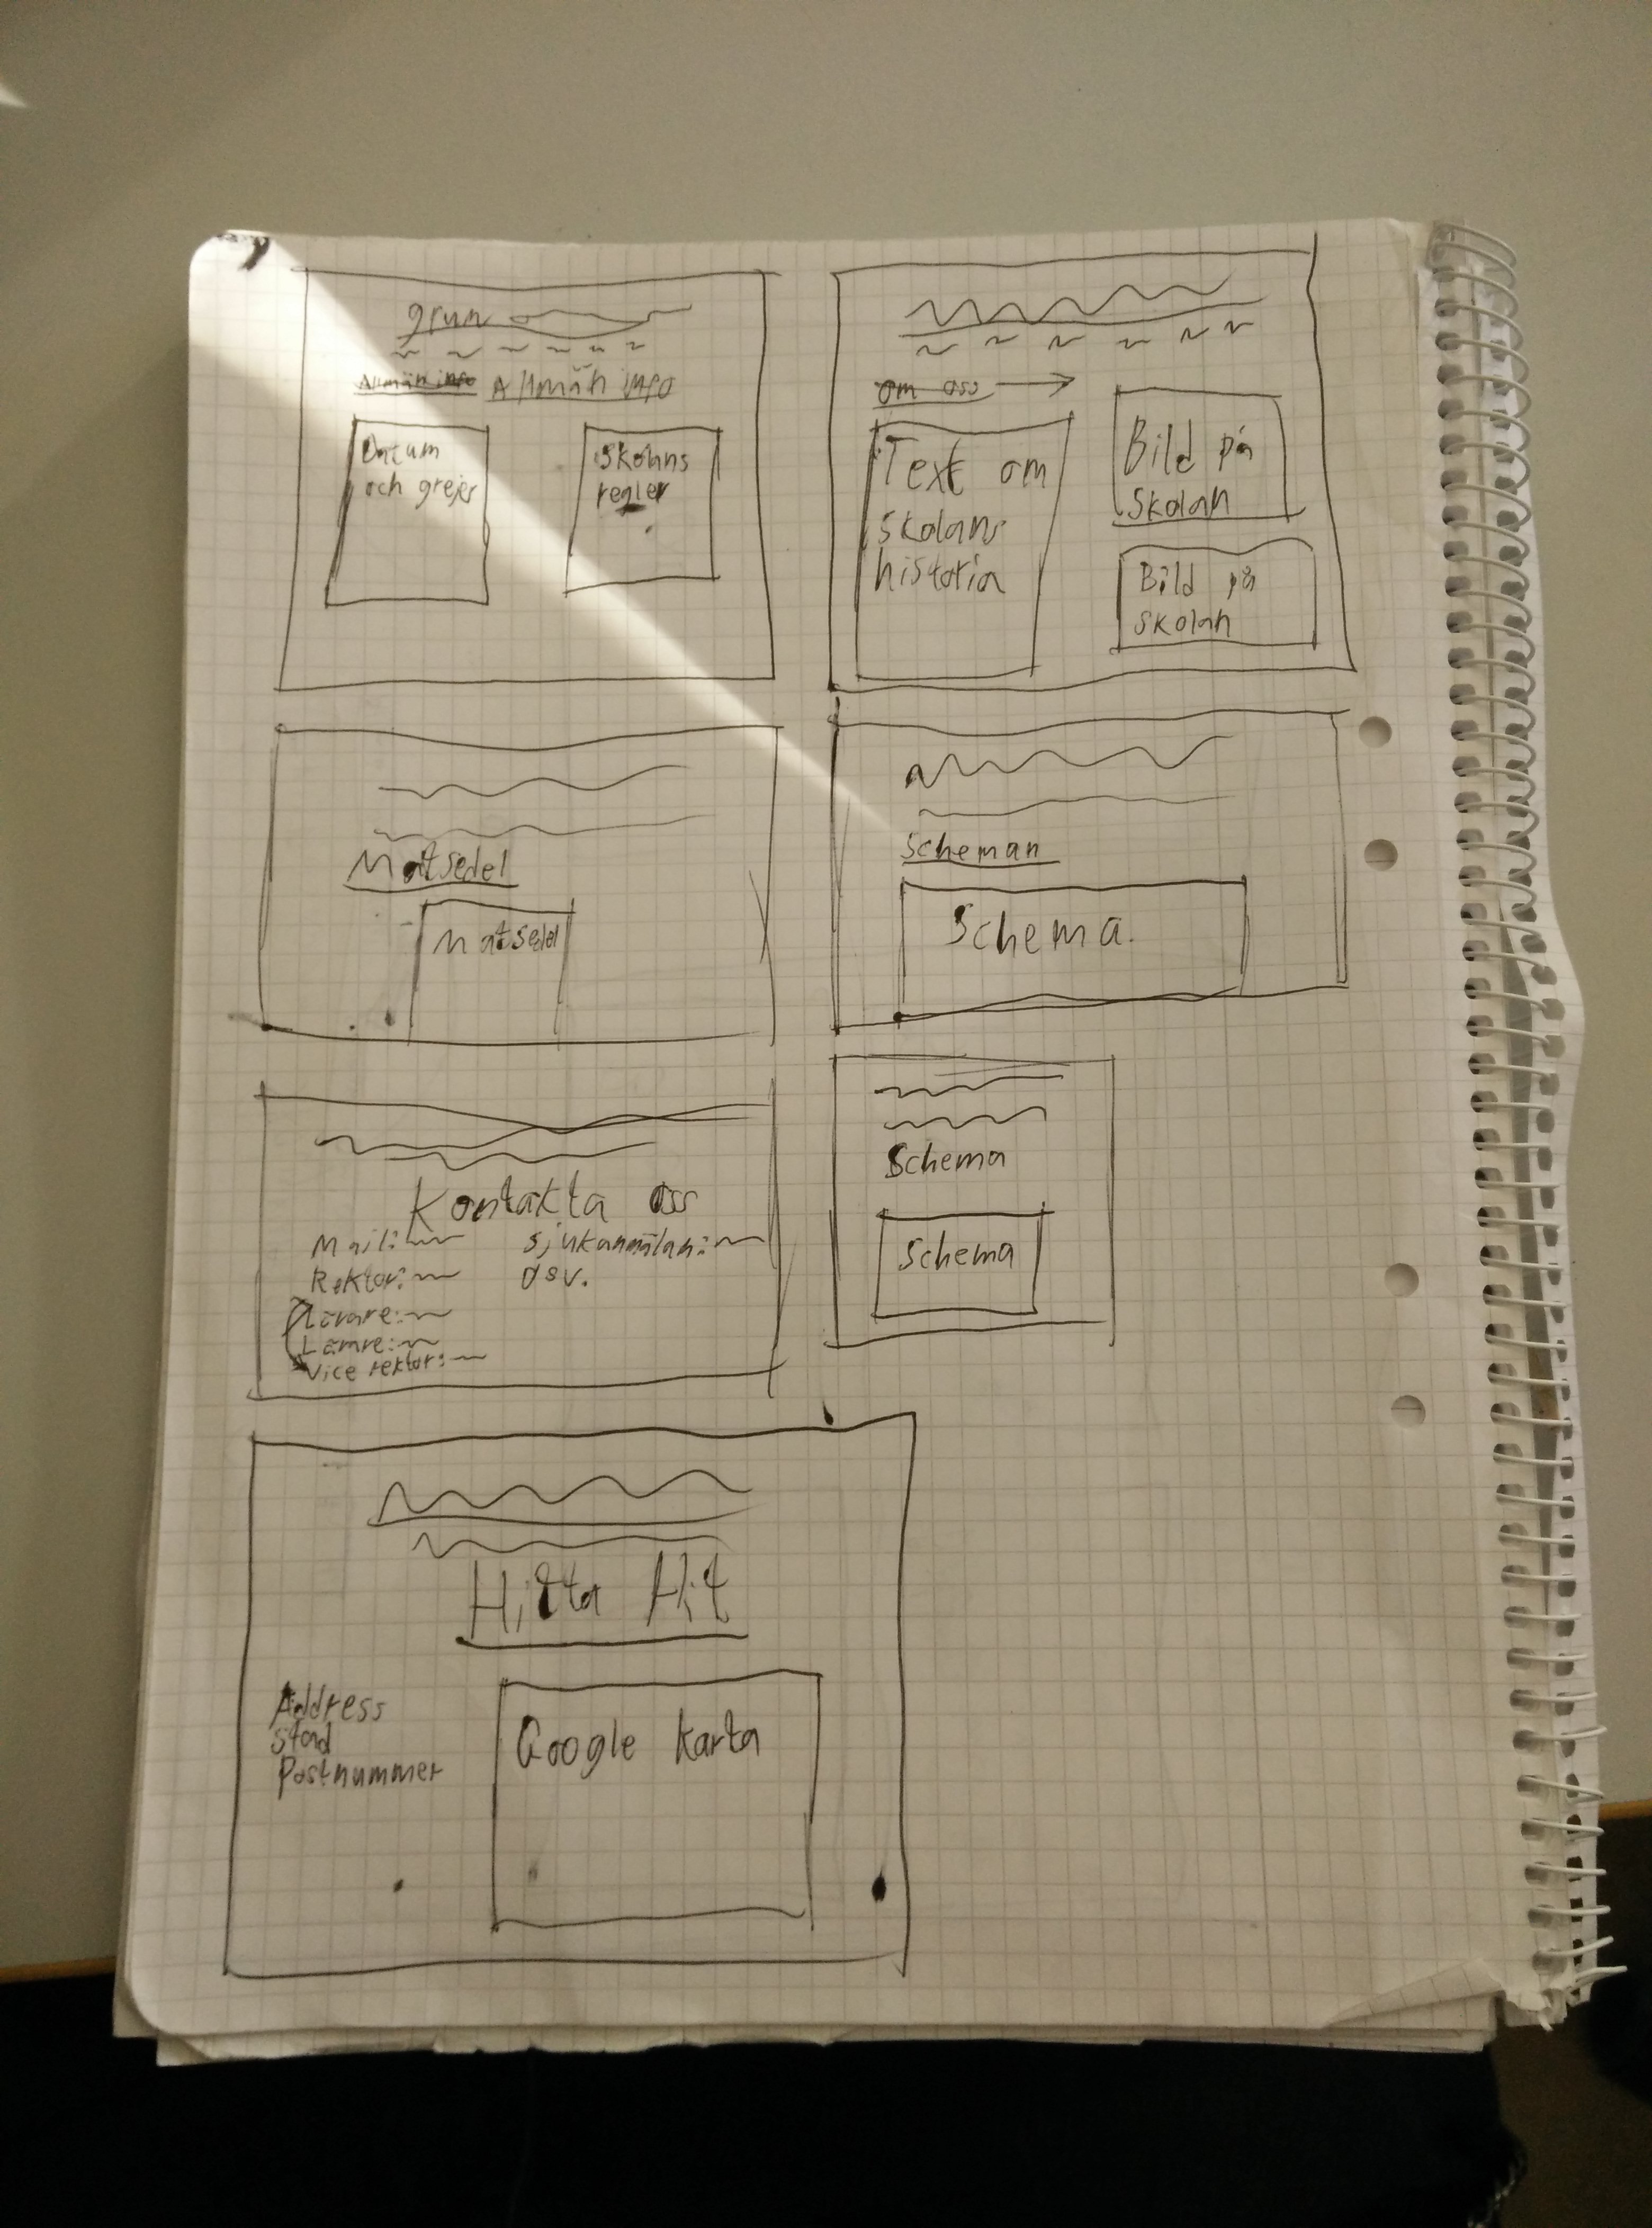 grun
Allmän info Allmän info
Datum
och grejer
Skolans
regler
om oss
Text om
skolans
historia
Bild på
skolan
Bild på
skolan
Matsedel
Matsedel
Scheman
Schema.
Kontakta oss
Mail:
Rektor:
Lärare:
Lärare:
Vice rektor:
Sjukanmälan:
osv.
Schema
Schema
Hitta Hit
Address
Stad
Postnummer
Google Karta